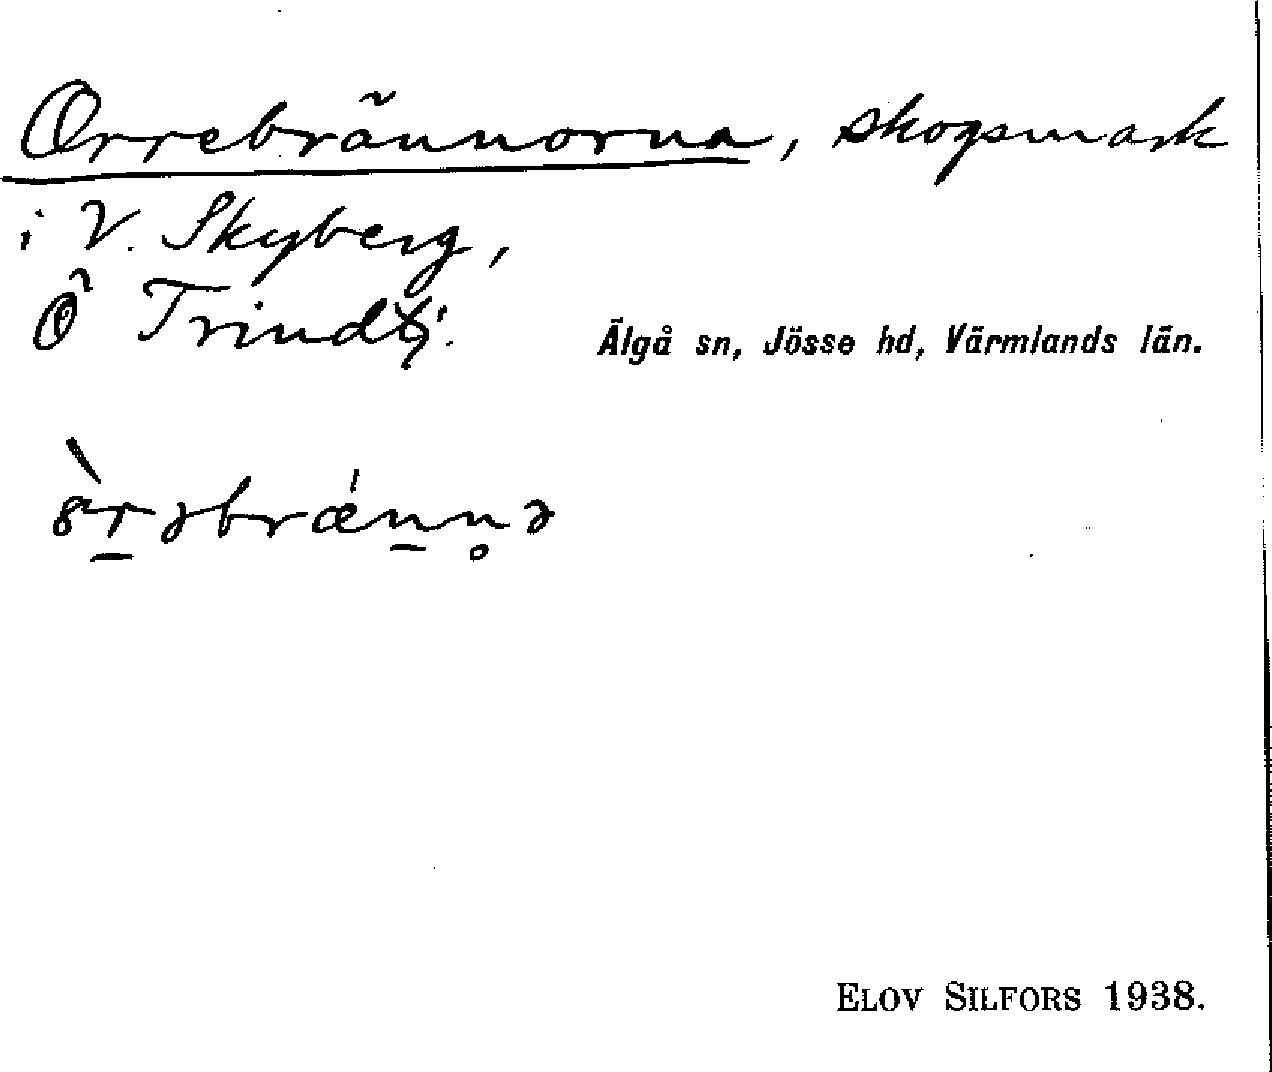 Orrebrännorna, skogsmark
i V. Skyberg,
Ö Trindtj. Älgå sn, Jösse hd, Värmlands län.
ELOV SILFORS 1938.